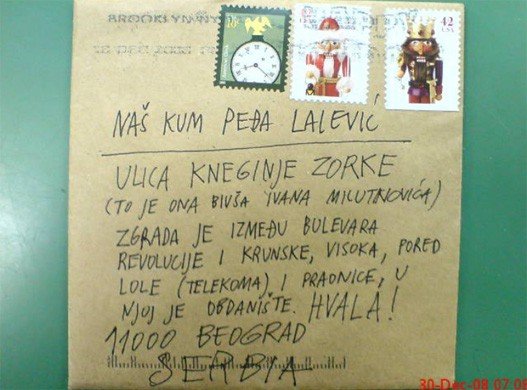 BROOKLYN NY
10¢
42
USA
NAŠ KUM PEĐA LALEVIĆ
ULICA KNEGINJE ZORKE
(TO JE ONA BIVŠA IVANA MILUTINOVIĆA)
ZGRADA JE IZMEĐU BULEVARA
REVOLUCIJE I KRUNSKE, VISOKA, PORED
LOLE (TELEKOMA) I PRAONICE, U
NJOJ JE OBDANIŠTE. HVALA!
11000 BEOGRAD
SERBIA
30-Dec-08 07:0